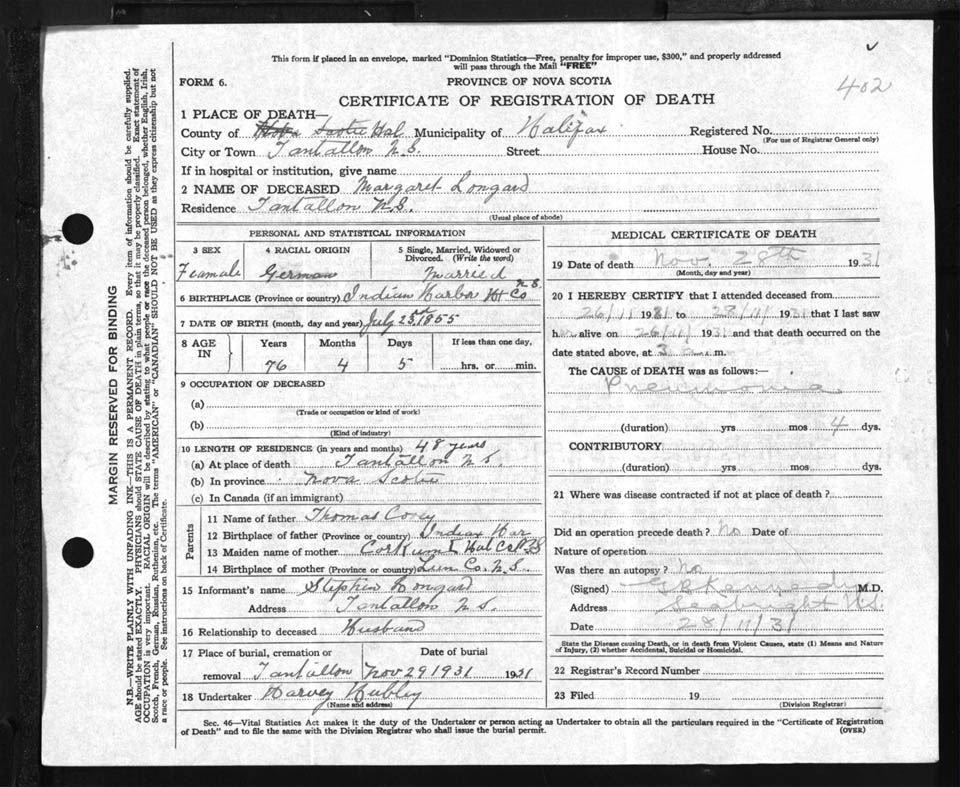 This form if placed in an envelope, marked "Dominion Statistics—Free, penalty for improper use, $300," and properly addressed
will pass through the Mail "FREE"
402
FORM 6.
PROVINCE OF NOVA SCOTIA
CERTIFICATE OF REGISTRATION OF DEATH
1 PLACE OF DEATH—
County of Hal Municipality of Halifax Registered No.
(For use of Registrar General only)
City or Town Tantallon N.S. Street House No.
If in hospital or institution, give name
2 NAME OF DECEASED Margaret Longard
Residence Tantallon N.S.
(Usual place of abode)
PERSONAL AND STATISTICAL INFORMATION
3 SEX 4 RACIAL ORIGIN 5 Single, Married, Widowed or Divorced. (Write the word)
Feamale German Married
6 BIRTHPLACE (Province or country) Indian Harbor Hx Co N.S.
7 DATE OF BIRTH (month, day and year) July 23rd 1855
8 AGE IN Years Months Days If less than one day,
76 4 5 hrs. or min.
9 OCCUPATION OF DECEASED
(a)
(Trade or occupation or kind of work)
(b)
(Kind of industry)
10 LENGTH OF RESIDENCE (in years and months) 48 years
(a) At place of death Tantallon N.S.
(b) In province Nova Scotia
(c) In Canada (if an immigrant)
Parents
11 Name of father Thomas Covey
12 Birthplace of father (Province or country) Indian Har
13 Maiden name of mother Corkum Hal Co N.S
14 Birthplace of mother (Province or country) Lun Co. N.S.
15 Informant's name Stephen Longard
Address Tantallon N.S.
16 Relationship to deceased Husband
17 Place of burial, cremation or removal Date of burial
Tantallon Nov 29 1931 1931
18 Undertaker Harvey Hubley
(Name and address)
MEDICAL CERTIFICATE OF DEATH
19 Date of death Nov. 28th 1931
(Month, day and year)
20 I HEREBY CERTIFY that I attended deceased from
26/11 1931 to 28/11/ 1931 that I last saw
her alive on 26/11/ 1931 and that death occurred on
date stated above, at 3 a.m.
The CAUSE of DEATH was as follows:—
Pneumonia
(duration) yrs mos 4 dys.
CONTRIBUTORY
(duration) yrs mos dys.
21 Where was disease contracted if not at place of death?
Did an operation precede death? No Date of
Nature of operation
Was there an autopsy? No
(Signed) Kennedy M.D.
Address Seabright N.S.
Date 28/11/31
State the Disease Causing Death, or in death from Violent Causes, state (1) Means and Nature
of Injury, (2) whether Accidental, Suicidal or Homicidal.
22 Registrar's Record Number
23 Filed 19
(Division Registrar)
Sec. 46—Vital Statistics Act makes it the duty of the Undertaker or person acting as Undertaker to obtain all the particulars required in the "Certificate of Registration
of Death" and to file the same with the Division Registrar who shall issue the burial permit.
(OVER)
MARGIN RESERVED FOR BINDING
N.B.—WRITE PLAINLY WITH UNFADING INK—THIS IS A PERMANENT RECORD. Every item of information should be carefully supplied.
AGE should be stated EXACTLY. PHYSICIANS should STATE CAUSE OF DEATH in plain terms, so that it may be properly classified. Exact statement of
OCCUPATION is very important. RACIAL ORIGIN will be described by stating to what people or race the deceased person belonged, whether English, Irish,
Scotch, French, German, Russian, Ruthenian, etc. The terms "AMERICAN" or "CANADIAN" SHOULD NOT BE USED as they express citizenship but not
a race or people. See instructions on back of Certificate.